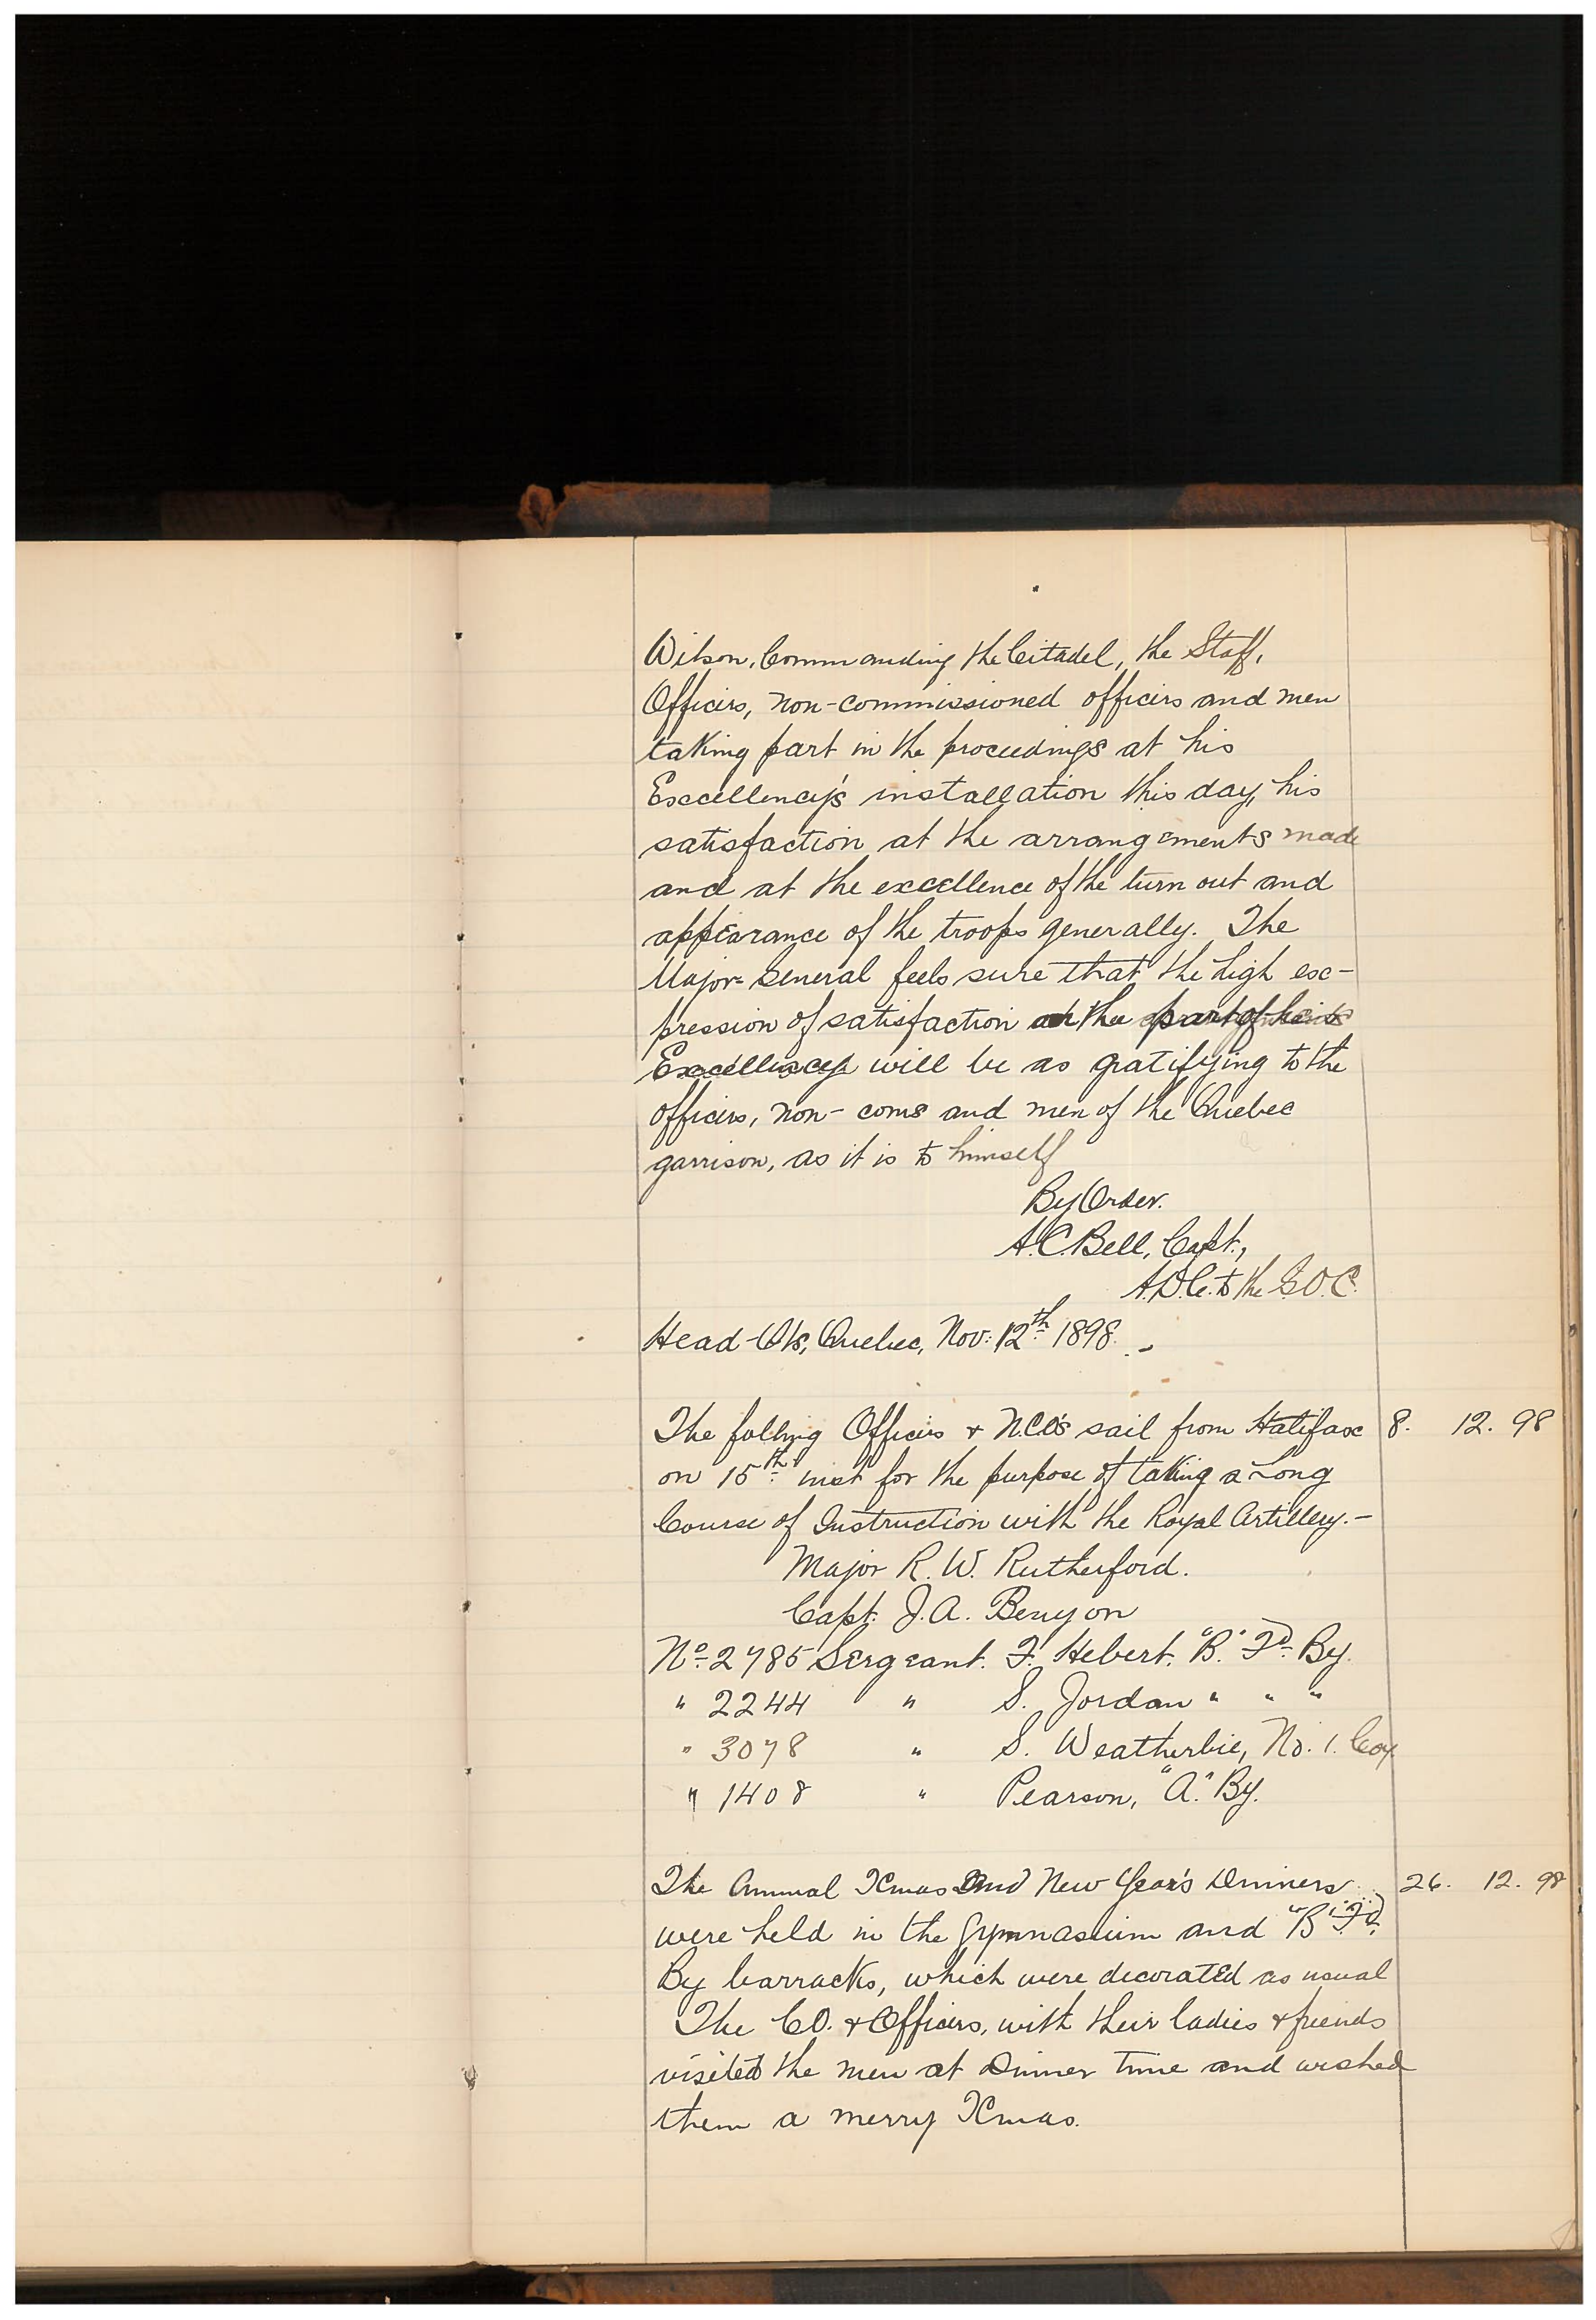 Wilson, Commanding the Citadel, the Staff,
Officers, non-commissioned officers and men
taking part in the proceedings at his
Excellency's installation this day, his
satisfaction at the arrangements made
and at the excellence of the turn out and
appearance of the troops generally. The
Major-General feels sure that the high ex-
pression of satisfaction on the part of his
Excellency will be as gratifying to the
officers, non-coms and men of the Quebec
garrison, as it is to himself
By Order.
A.C. Bell, Capt.,
A.D.C. to the G.O.C.
Head-Qrs, Quebec, Nov: 12th 1898.-
The follng Officers & N.C.O's sail from Halifax 8. 12. 98
on 15th inst for the purpose of taking a Long
Course of Instruction with the Royal Artillery.-
Major R. W. Rutherford.
Capt. J.A. Benyon
No 2785 Sergeant. F. Hebert. "B" Fd. By.
" 2244 " S. Jordan " " "
" 3078 " S. Weatherbie, No. 1. Coy
" 1408 " Pearson, "A" By.
The Annual Xmas and New Year's Dinners 26. 12. 98
were held in the Gymnasium and "B" Fd.
By barracks, which were decorated as usual
The CO. & Officers, with their ladies & friends
visited the men at Dinner Time and wished
them a merry Xmas.